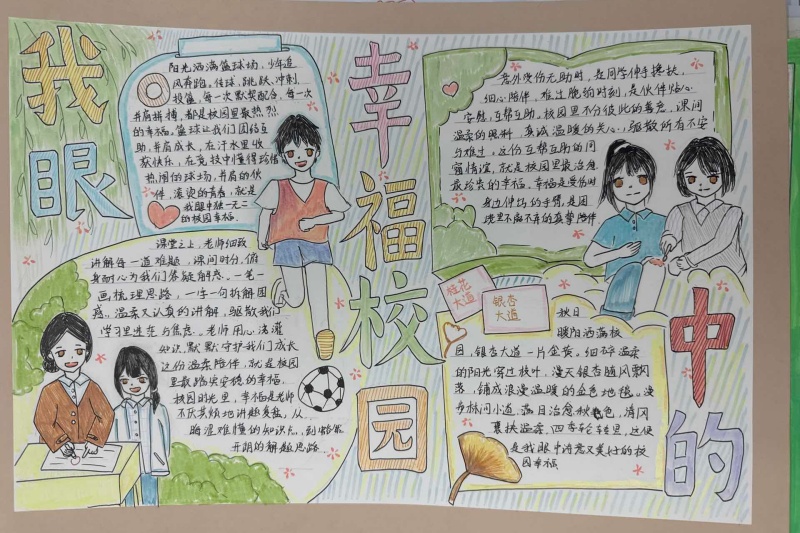 我眼
中的
幸福校园
阳光洒满篮球场，少年追
风奔跑。传球、跳跃、冲刺、
投篮，每一次默契配合，每一次
并肩拼搏，都是校园里最热烈
的幸福。篮球让我们团结互
助，并肩成长，在汗水里收
获快乐，在竞技中懂得珍惜
热闹的球场，并肩的伙
伴，滚烫的青春，就是
我眼中独一无二
的校园幸福。
意外受伤无助时，是同学伸手搀扶，
细心陪伴，难过脆弱时刻，是伙伴贴心
安慰，互帮互助。校园里不分彼此的善意，课间
温柔的照料，真诚温暖的关心，驱散所有不安
与难过，这份互帮互助的同
窗情谊，就是校园里最治愈
最珍贵的幸福。幸福是受伤时
身边伸出的手臂，是困
境里不离不弃的真挚陪伴
课堂之上，老师细致
讲解每一道难题，课间时分，俯
身耐心为我们答疑解惑。一笔一
画梳理思路，一字一句拆解困
惑。温柔又认真的讲解，驱散我们
学习里迷茫与焦虑。老师用心浇灌
知识，默默守护我们成长
这份温柔陪伴，就是校园
里最踏实安稳的幸福。
校园时光里，幸福是老师
不厌其烦地讲题答疑，从
晦涩难懂的知识点，到豁然
开朗的解题思路
桂花
大道
银杏
大道
秋日
暖阳洒满校
园，银杏大道一片金黄，细碎温柔
的阳光穿过枝叶，漫天银杏随风飘
落，铺成浪漫温暖的金色地毯。漫
步林间小道，满目治愈秋色，清风
裹挟温柔，四季轮转里，这便
是我眼中诗意又美好的校
园幸福